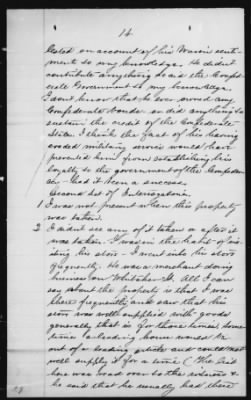 14
lested on account of his Union senti-
ments to my knowledge. He didn't
contribute anything to aid the Confed-
erate Government to my knowledge.
I don't know that he ever owned any
Confederate bonds or did anything to
sustain the credit of the Confederate
States. I think the fact of his having
evaded military service would have
prevented him from establishing his
loyalty to the government of the Confeder-
acy had it been a success.
Second set of Interrogatories.
1 I was not present when this property
was taken.
2 I didn't see any of it taken or after it
was taken. I was in the habit of vis-
iting his store. I went into his store
frequently. He was a merchant doing
business on Whitaker St. All I can
say about the property is that I was
there frequently and saw that his
store was well supplied with goods
generally that is for those times. Some
times a trading house would be
out of a leading article and could not
well supply it for a time (The
here was read over to the witness &
he said that he usually had these